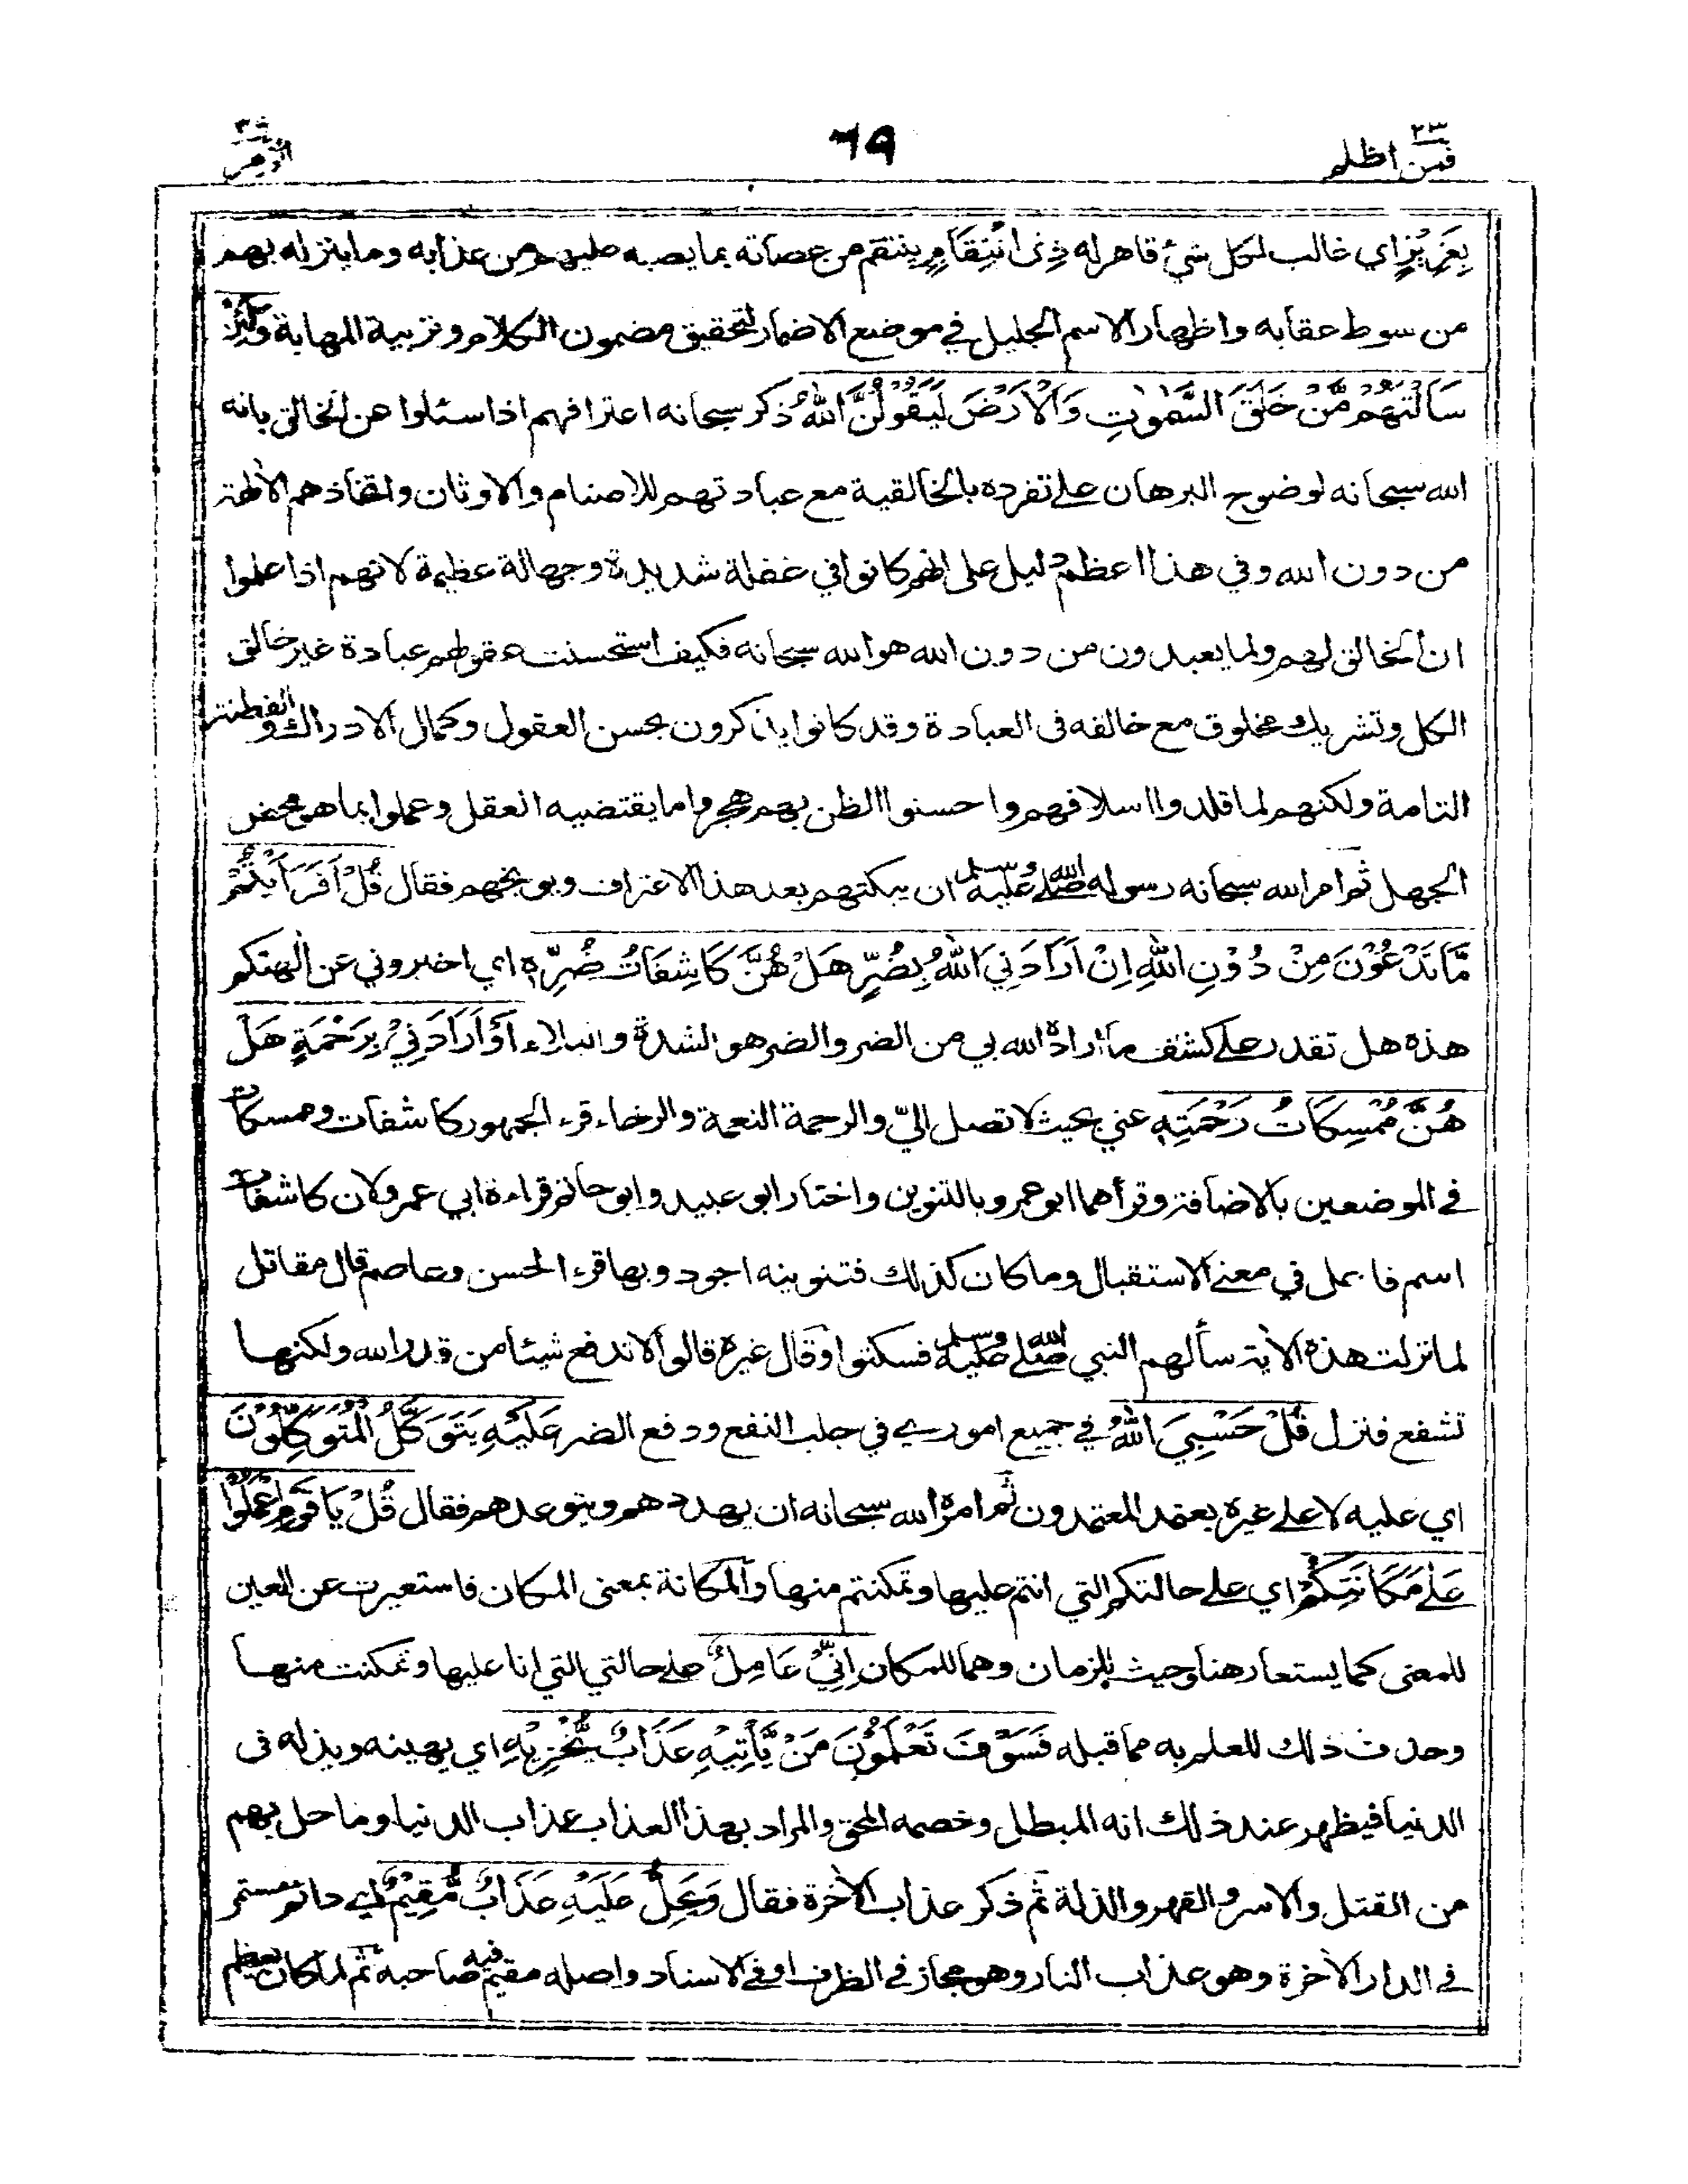 فمن اظلم ٢٣
٦٩
الزمر ٣٩
بِعَزِيْزٍ اي غالب لكل شئ قاهر له ذِى انْتِقَامٍ ينتقم من عصاته بما يصبه عليهم من عذابه وما ينزله بهم
من سوط عقابه واظهار الاسم الجليل في موضع الاضمار لتحقيق مضمون الكلام وتربية المهابة وَلَئِنْ
سَاَلْتَهُمْ مَّنْ خَلَقَ السَّمٰوٰتِ وَالْاَرْضَ لَيَقُوْلُنَّ اللّٰهُ ذكر سبحانه اعترافهم اذا سئلوا عن الخالق بانه
الله سبحانه لوضوح البرهان على تفرده بالخالقية مع عبادتهم للاصنام والاوثان واتخاذهم الآلهة
من دون الله وفي هذا اعظم دليل على انهم كانوا في غفلة شديدة وجهالة عظيمة لانهم اذا علموا
ان الخالق لهم ولما يعبدون من دون الله هو الله سبحانه فكيف استحسنت عقولهم عبادة غير خالق
الكل وتشريك مخلوق مع خالقه فى العبادة وقد كانوا يذكرون بحسن العقول وكمال الادراك والفطنة
التامة ولكنهم لما قلدوا اسلافهم واحسنوا الظن بهم هجروا ما يقتضيه العقل وعملوا بما هو محض
الجهل ثم امر الله سبحانه رسوله صلى الله عليه وسلم ان يبكتهم بعد هذا الاعتراف ويوبخهم فقال قُلْ اَفَرَاَيْتُمْ
مَّا تَدْعُوْنَ مِنْ دُوْنِ اللّٰهِ اِنْ اَرَادَنِيَ اللّٰهُ بِضُرٍّ هَلْ هُنَّ كَاشِفَاتُ ضُرِّهٖ اي اخبروني عن آلهتكم
هذه هل تقدر على كشف ما اراده الله بي من الضر والضر هو الشدة والبلاء اَوْ اَرَادَنِيْ بِرَحْمَةٍ هَلْ
هُنَّ مُمْسِكَاتُ رَحْمَتِهٖ عني بحيث لا تصل اليّ والرحمة النعمة والرخاء قرء الجمهور كاشفات وممسكات
في الموضعين بالاضافة وقرأهما ابو عمرو بالتنوين واختار ابو عبيد وابو حاتم قراءة ابي عمرو لان كاشفات
اسم فاعل في معنى الاستقبال وما كان كذلك فتنوينه اجود وبها قرء الحسن وعاصم قال مقاتل
لما نزلت هذه الآية سألهم النبي صلى الله عليه وسلم فسكتوا وقال غيره قالوا لا تدفع شيئا من قدر الله ولكنها
تشفع فنزل قُلْ حَسْبِيَ اللّٰهُ في جميع اموري في جلب النفع ودفع الضر عَلَيْهِ يَتَوَكَّلُ الْمُتَوَكِّلُوْنَ
اي عليه لا على غيره يعتمد المعتمدون ثم امره الله سبحانه ان يهددهم ويتوعدهم فقال قُلْ يَا قَوْمِ اعْمَلُوْا
عَلٰى مَكَانَتِكُمْ اي على حالتكم التي انتم عليها وتمكنتم منها والمكانة بمعنى المكان فاستعيرت عن العين
للمعنى كما يستعار هنا وحيث للزمان وهما للمكان اِنِّيْ عَامِلٌ على حالتي التي انا عليها وتمكنت منها
وحذف ذلك للعلم به مما قبله فَسَوْفَ تَعْلَمُوْنَ مَنْ يَّأْتِيْهِ عَذَابٌ يُّخْزِيْهِ اي يهينه ويذله فى
الدنيا فيظهر عند ذلك انه المبطل وخصمه المحق والمراد بهذا العذاب عذاب الدنيا وما حل بهم
من القتل والاسر والقهر والذلة ثم ذكر عذاب الآخرة فقال وَيَحِلُّ عَلَيْهِ عَذَابٌ مُّقِيْمٌ اي دائم مستمر
في الدار الآخرة وهو عذاب النار وهو مجاز في الظرف او في الاسناد واصله مقيم فيه صاحبه ثم لما كان يعظم